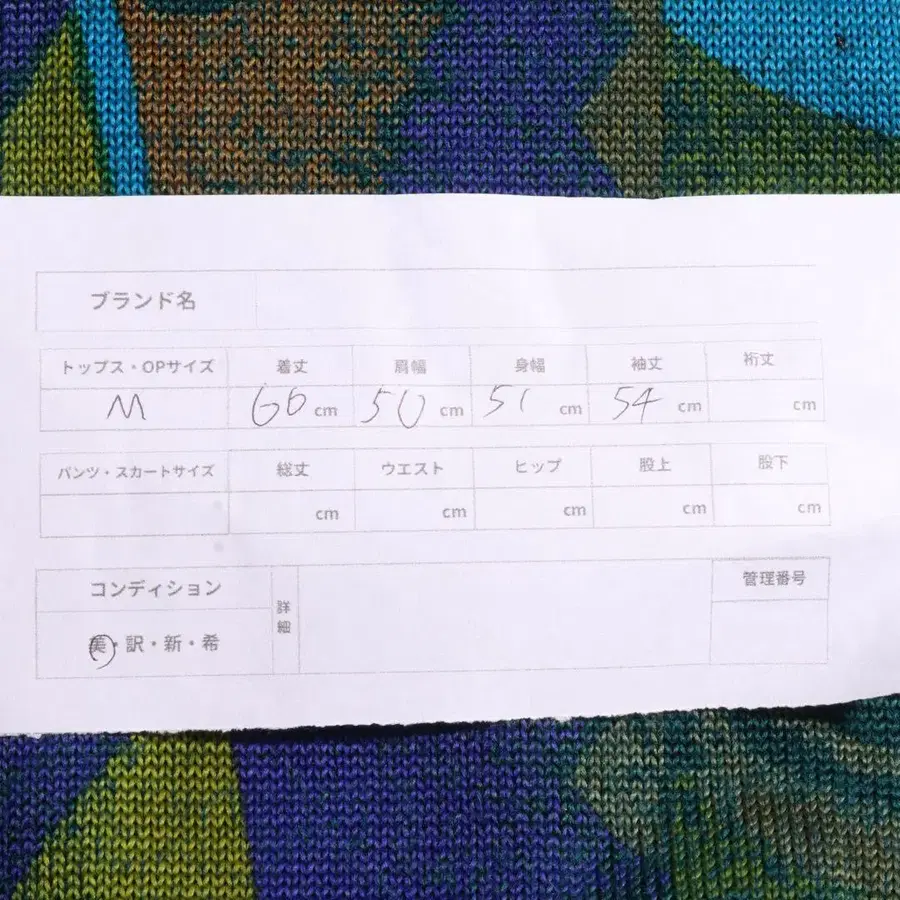 ブランド名
トップス・OPサイズ 着丈 肩幅 身幅 袖丈 裄丈
M 66 cm 50 cm 51 cm 54 cm cm
パンツ・スカートサイズ 総丈 ウエスト ヒップ 股上 股下
cm cm cm cm cm
コンディション 詳細 管理番号
美・訳・新・希